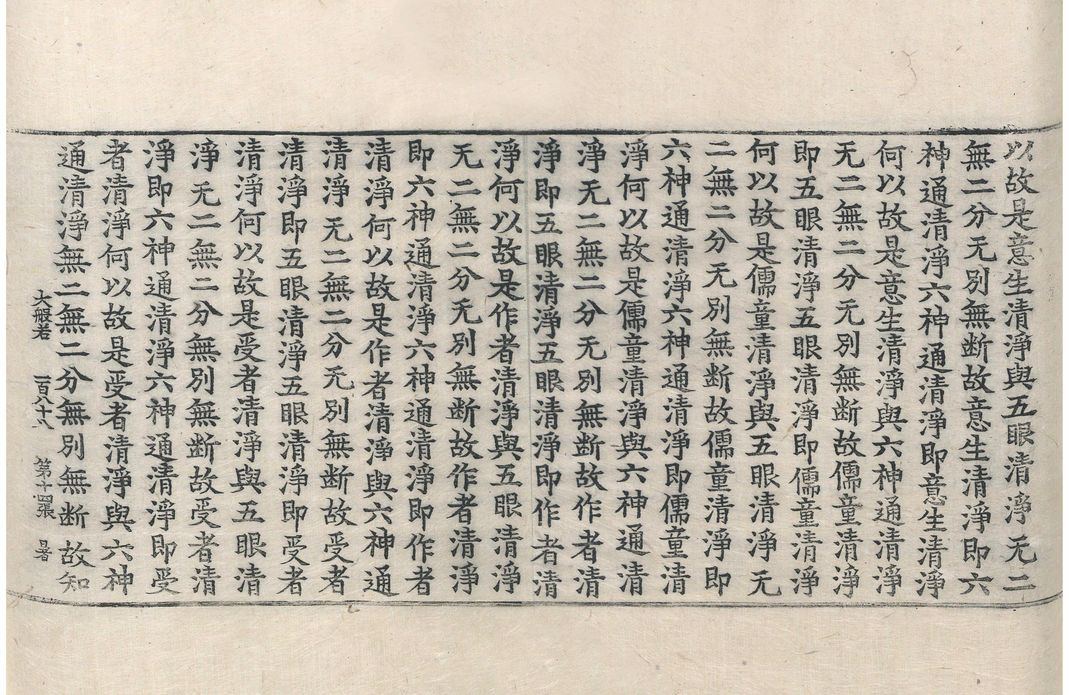 以故是意生清淨與五眼清淨无二
無二分无別無断故意生清淨即六
神通清淨六神通清淨即意生清淨
何以故是意生清淨與六神通清淨
无二無二分无別無断故儒童清淨
即五眼清淨五眼清淨即儒童清淨
何以故是儒童清淨與五眼清淨无
二無二分无別無断故儒童清淨即
六神通清淨六神通清淨即儒童清
淨何以故是儒童清淨與六神通清
淨无二無二分无別無断故作者清
淨即五眼清淨五眼清淨即作者清
淨何以故是作者清淨與五眼清淨
无二無二分无別無断故作者清淨
即六神通清淨六神通清淨即作者
清淨何以故是作者清淨與六神通
清淨无二無二分无別無断故受者
清淨即五眼清淨五眼清淨即受者
清淨何以故是受者清淨與五眼清
淨无二無二分無別無断故受者清
淨即六神通清淨六神通清淨即受
者清淨何以故是受者清淨與六神
通清淨無二無二分無別無断故知
大般若 一百八十 第十四張 暑